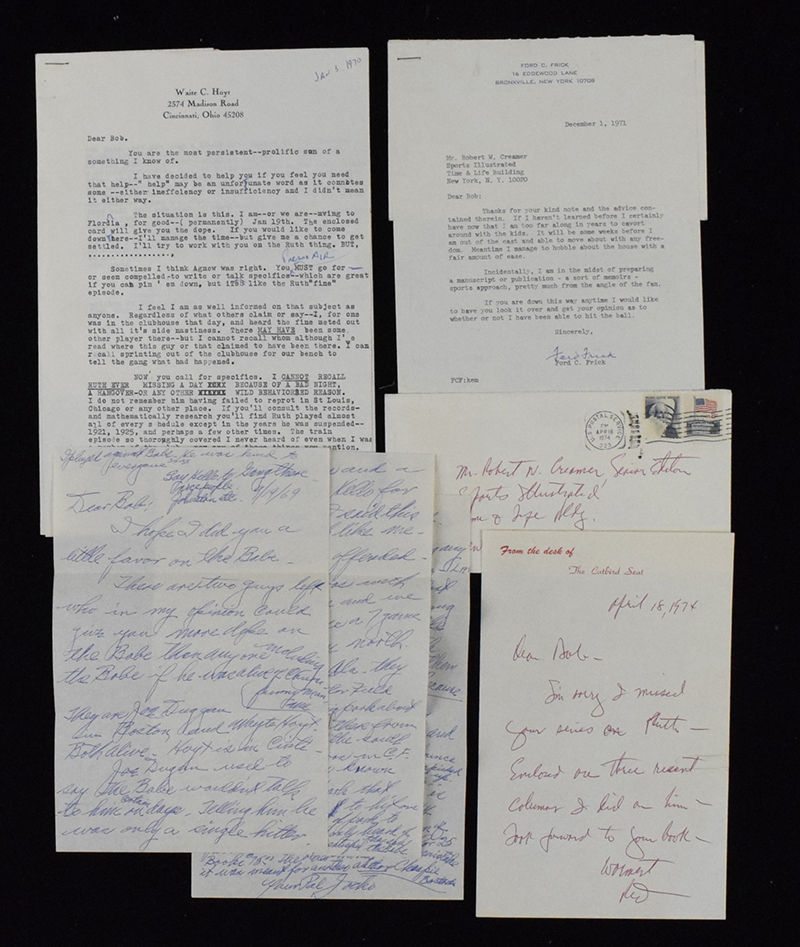 JAN 3 1970
Waite C. Hoyt
2574 Madison Road
Cincinnati, Ohio 45208
Dear Bob.
You are the most persistent--prolific son of a
something I know of.
I have decided to help you if you feel you need
that help--" help" may be an unfortunate word as it connotes
some --either inefficiency or insufficiency and I didn't mean
it either way.
The situation is this. I am--or we are--mving to
Flordia , for good--( permanently) Jan 19th. The enclosed
card will give you the dope. If you would like to come
down there--I'll manage the time--but give me a chance to get
settled. I'll try to work with you on the Ruth thing. BUT,
Sometimes I think Agnew was right. You MUST go for
or seem compelled-to write or talk specifics--which are great
if you can pin ' em down, but it's like the Ruth"fine"
episode.
I feel I am as well informed on that subject as
anyone. Regardless of what others claim or say--I, for one
was in the clubhouse that day, and heard the fine meted out
with all it's side nastiness. There MAY HAVE been some
other player there--but I cannot recall whom although I've
read where this guy or that claimed to have been there. I can
recall sprinting out of the clubhouse for our bench to
tell the gang what had happened.
NOW you call for specifics. I CANNOT RECALL
RUTH EVER MISSING A DAY BECAUSE OF A BAD NIGHT,
A HANGOVER-OR ANY OTHER WILD BEHAVIORED REASON.
I do not remember him having failed to reprot in St Louis,
Chicago or any other place. If you'll consult the records-
and mathematically research you'll find Ruth played almost
all of every s hedule except in the years he was suspended--
1921, 1925, and perhaps a few other times. The train
episode so thoroughly covered I never heard of even when I was
FORD C. FRICK
16 EDGEWOOD LANE
BRONXVILLE, NEW YORK 10708
December 1, 1971
Mr. Robert W. Creamer
Sports Illustrated
Time & Life Building
New York, N. Y. 10020
Dear Bob:
Thanks for your kind note and the advice con-
tained therein. If I haven't learned before I certainly
have now that I am too far along in years to cavort
around with the kids. It will be some weeks before I
am out of the cast and able to move about with any free-
dom. Meantime I manage to hobble about the house with a
fair amount of ease.
Incidentally, I am in the midst of preparing
a manuscript or publication - a sort of memoirs -
sports approach, pretty much from the angle of the fan.
If you are down this way anytime I would like
to have you look it over and get your opinion as to
whether or not I have been able to hit the ball.
Sincerely,
Ford Frick
Ford C. Frick
FCF:kem
U.S. POSTAL SERVICE
PM
APR 18
1974
Mr. Robert W. Creamer, Senior Editor
Sports Illustrated
Time & Life Bldg.
I played against Babe he was kind to
everyone
Say Hello to Gang there.
9/9/69
Dear Bob:
I hope I did you a
little favor on the Babe.
There are two guys left
who in my opinion could
give you more dope on
the Babe than anyone including
the Babe if he was alive
They are Joe Duggan
in Boston and Whayte Hoyt
Both alive - Hoyt is in Cinti -
Joe Dugan used to
say the Babe wouldn't talk
to him on days. Telling him he
was only a single hitter.
and a
offended -
and we
north.
they
Field
from
the south
in C.F.
known
it was meant for another
Your Pal Jocko
From the desk of
The Catbird Seat
April 18, 1974
Dear Bob -
I'm sorry I missed
your series on Ruth -
Enclosed are three recent
columns I did on him -
Look forward to your book -
Warmest
Red